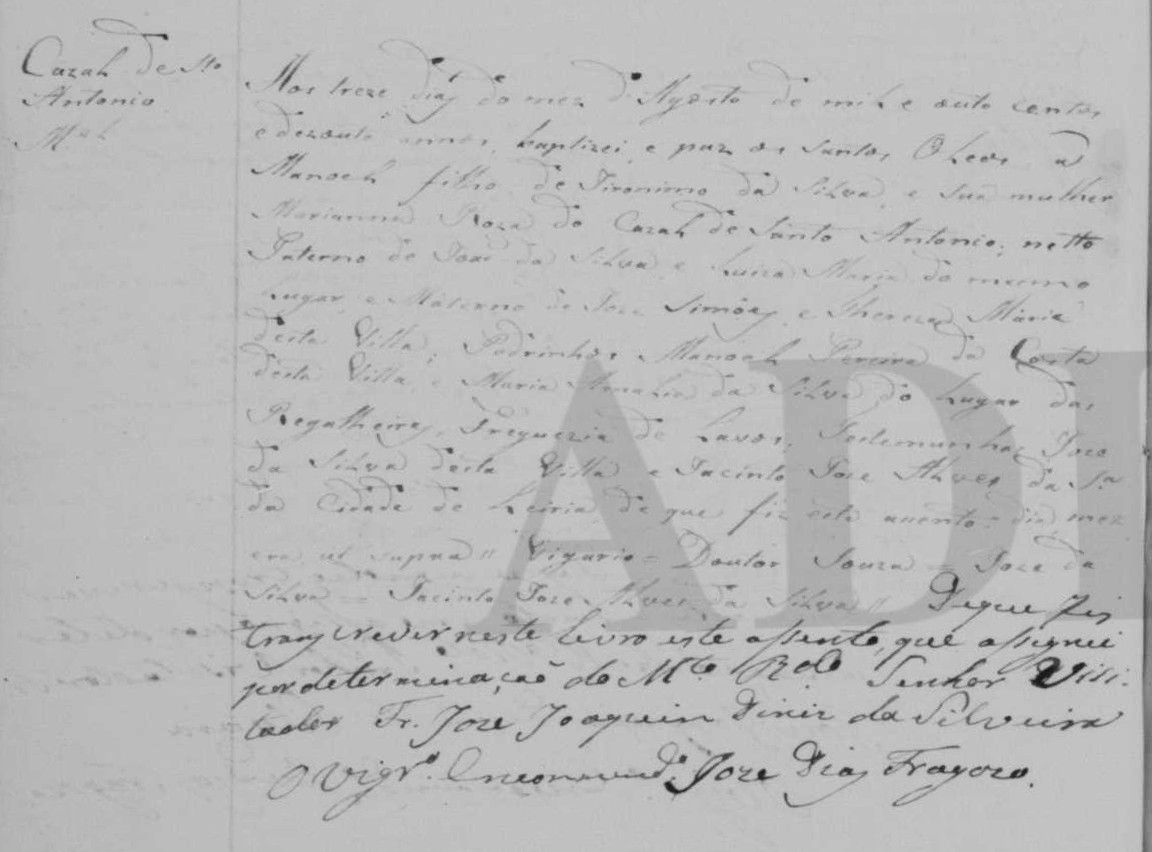 Cazal de Sto
Antonio
Mel
Aos treze dias do mez d'Agosto de mil e outo centos
e dezouto annos, baptizei, e puz os Santos Oleos a
Manoel filho de Jironimo da Silva, e sua mulher
Marianna Roza do Cazal de Santo Antonio; netto
Paterno de Joaõ da Silva, e Luiza Maria do mesmo
Lugar, e Materno de Joze Simões, e Thereza Maria
desta Villa; Padrinhos Manoel Pereira da Costa
desta Villa, e Maria Amalia da Silva do Lugar das
Regalheiras, Freguezia de Lavos, Testemunhas Joze
da Silva desta Villa e Jacinto Joze Alves da Sa
da Cidade de Leiria de que fiz este assento dia mez
era ut supra // Vigario = Doutor Souza = Joze da
Silva = Jacinto Joze Alves da Silva // De que fis
transcrever neste Livro este assento, que assignei
por determinação do Mto Rdo Senhor Visi-
tador Fr. Joze Joaquim Diniz da Silveira
O Vigro. Encommendo. Joze Dias Fragozo.
ADI